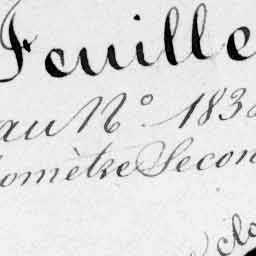 Feuille
au N° 183
omètre Secon
clo